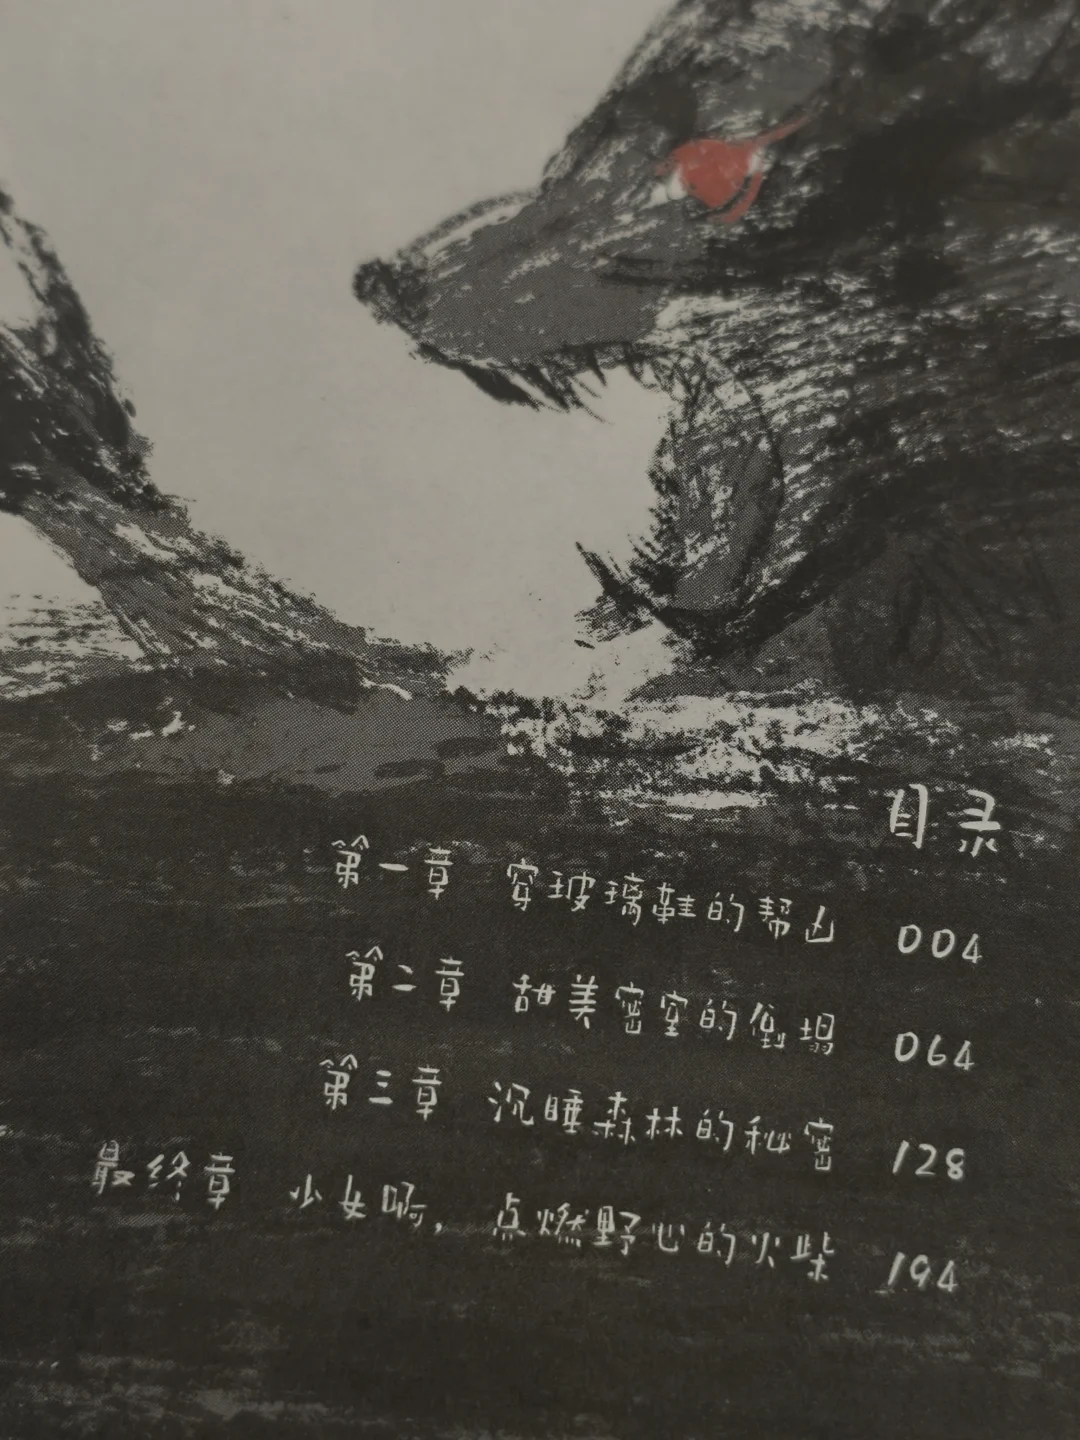 目录
第一章 穿玻璃鞋的帮凶 004
第二章 甜美密室的倒塌 064
第三章 沉睡森林的秘密 128
最终章 少女啊，点燃野心的火柴 194